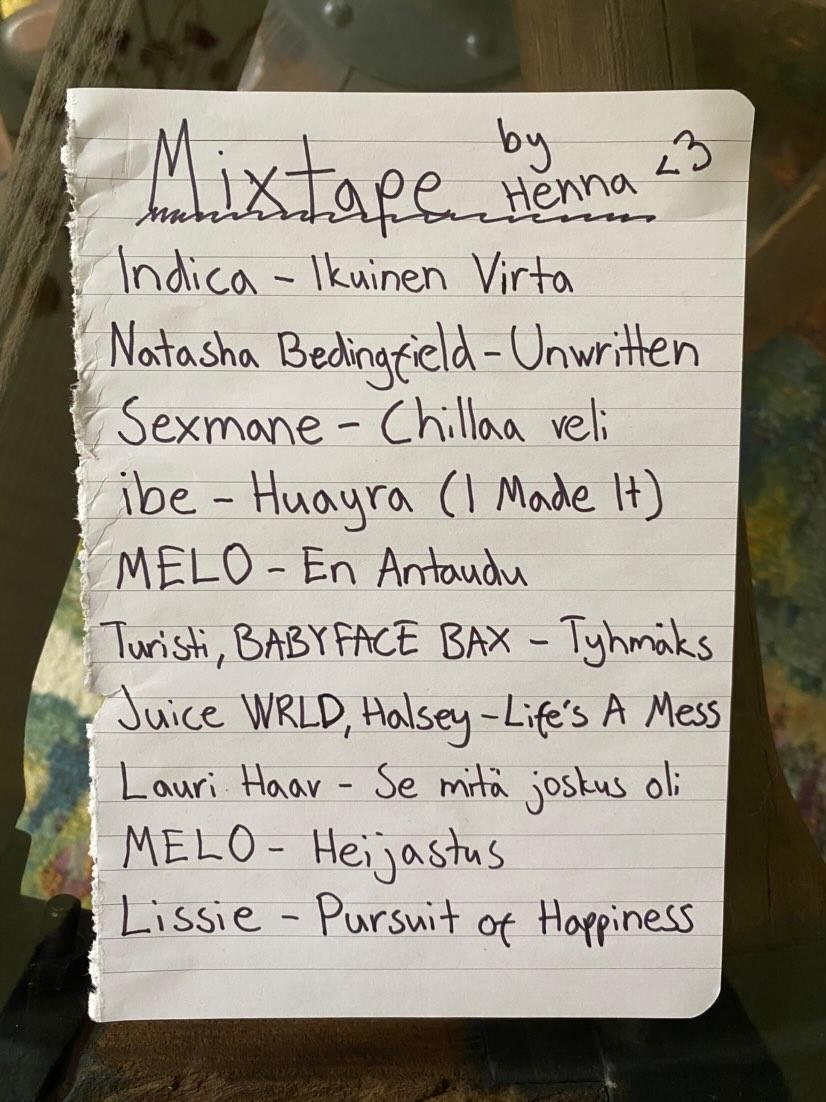 Mixtape by Henna <3
Indica - Ikuinen Virta
Natasha Bedingfield - Unwritten
Sexmane - Chillaa veli
ibe - Huayra (I Made It)
MELO - En Antaudu
Turisti, BABYFACE BAX - Tyhmäks
Juice WRLD, Halsey - Life's A Mess
Lauri Haav - Se mitä joskus oli
MELO - Heijastus
Lissie - Pursuit of Happiness